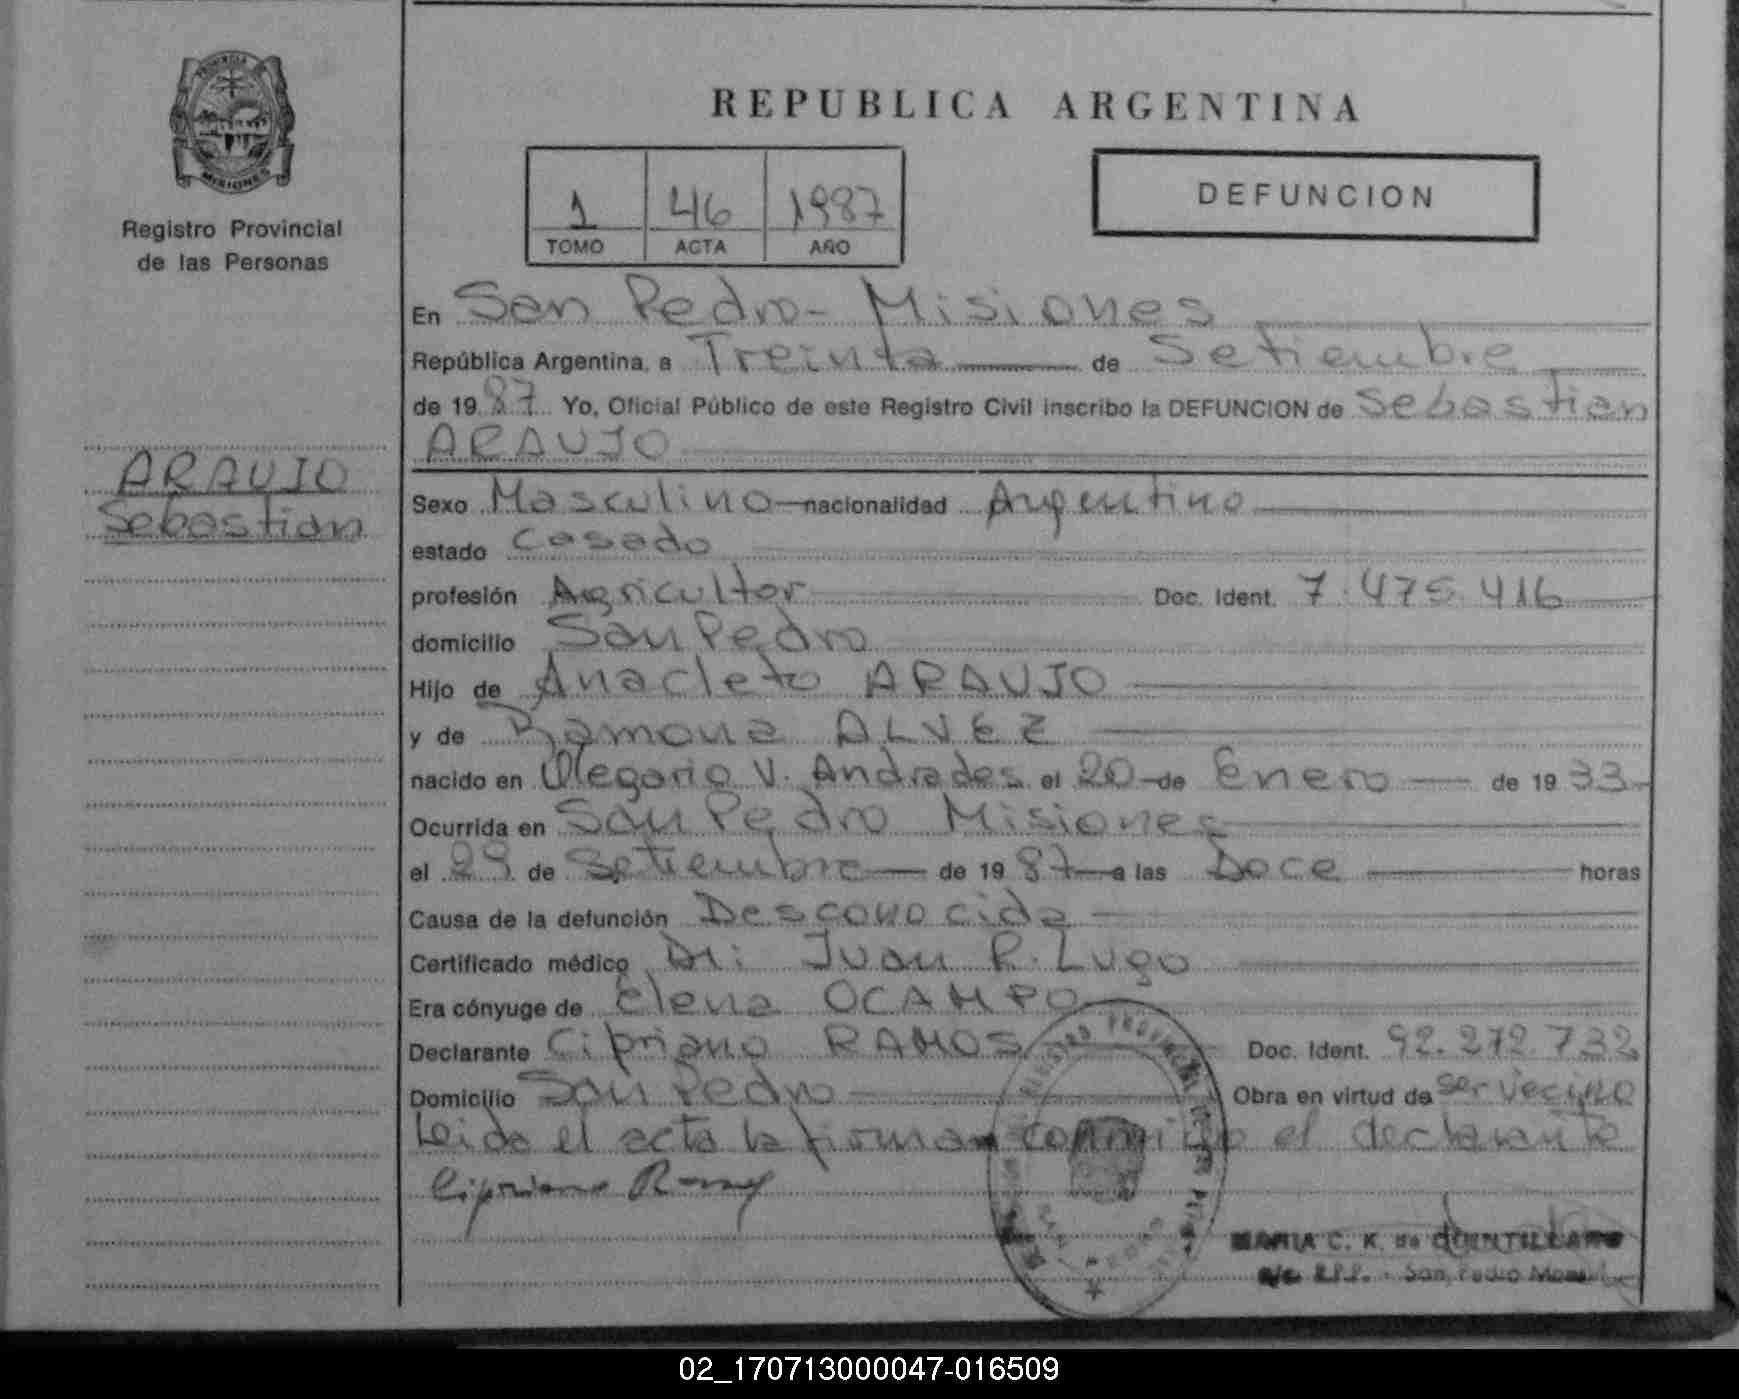 PROVINCIA
MISIONES
Registro Provincial
de las Personas
ARAUJO
Sebastian
REPUBLICA ARGENTINA
1 46 1987
TOMO ACTA AÑO
DEFUNCION
En San Pedro - Misiones
República Argentina, a Treinta de Setiembre
de 1987 Yo, Oficial Público de este Registro Civil inscribo la DEFUNCION de Sebastian
ARAUJO
Sexo Masculino nacionalidad Argentino
estado Casado
profesión Agricultor Doc. Ident. 7.475.416
domicilio San Pedro
Hijo de Anacleto ARAUJO
y de Ramona ALVEZ
nacido en Olegario V. Andrades el 20 de Enero de 1933
Ocurrida en San Pedro Misiones
el 29 de Setiembre de 1987 a las Doce horas
Causa de la defunción Desconocida
Certificado médico Dr: Juan R. Lugo
Era cónyuge de Elena OCAMPO
Declarante Cipriano RAMOS Doc. Ident. 92.272.732
Domicilio San Pedro Obra en virtud de ser vecino
Leida el acta la firman conmigo el declarante
Cipriano Ramos
MARIA C. K. de QUINTILLAN
a/c. R.P.P. - San Pedro
02_170713000047-016509